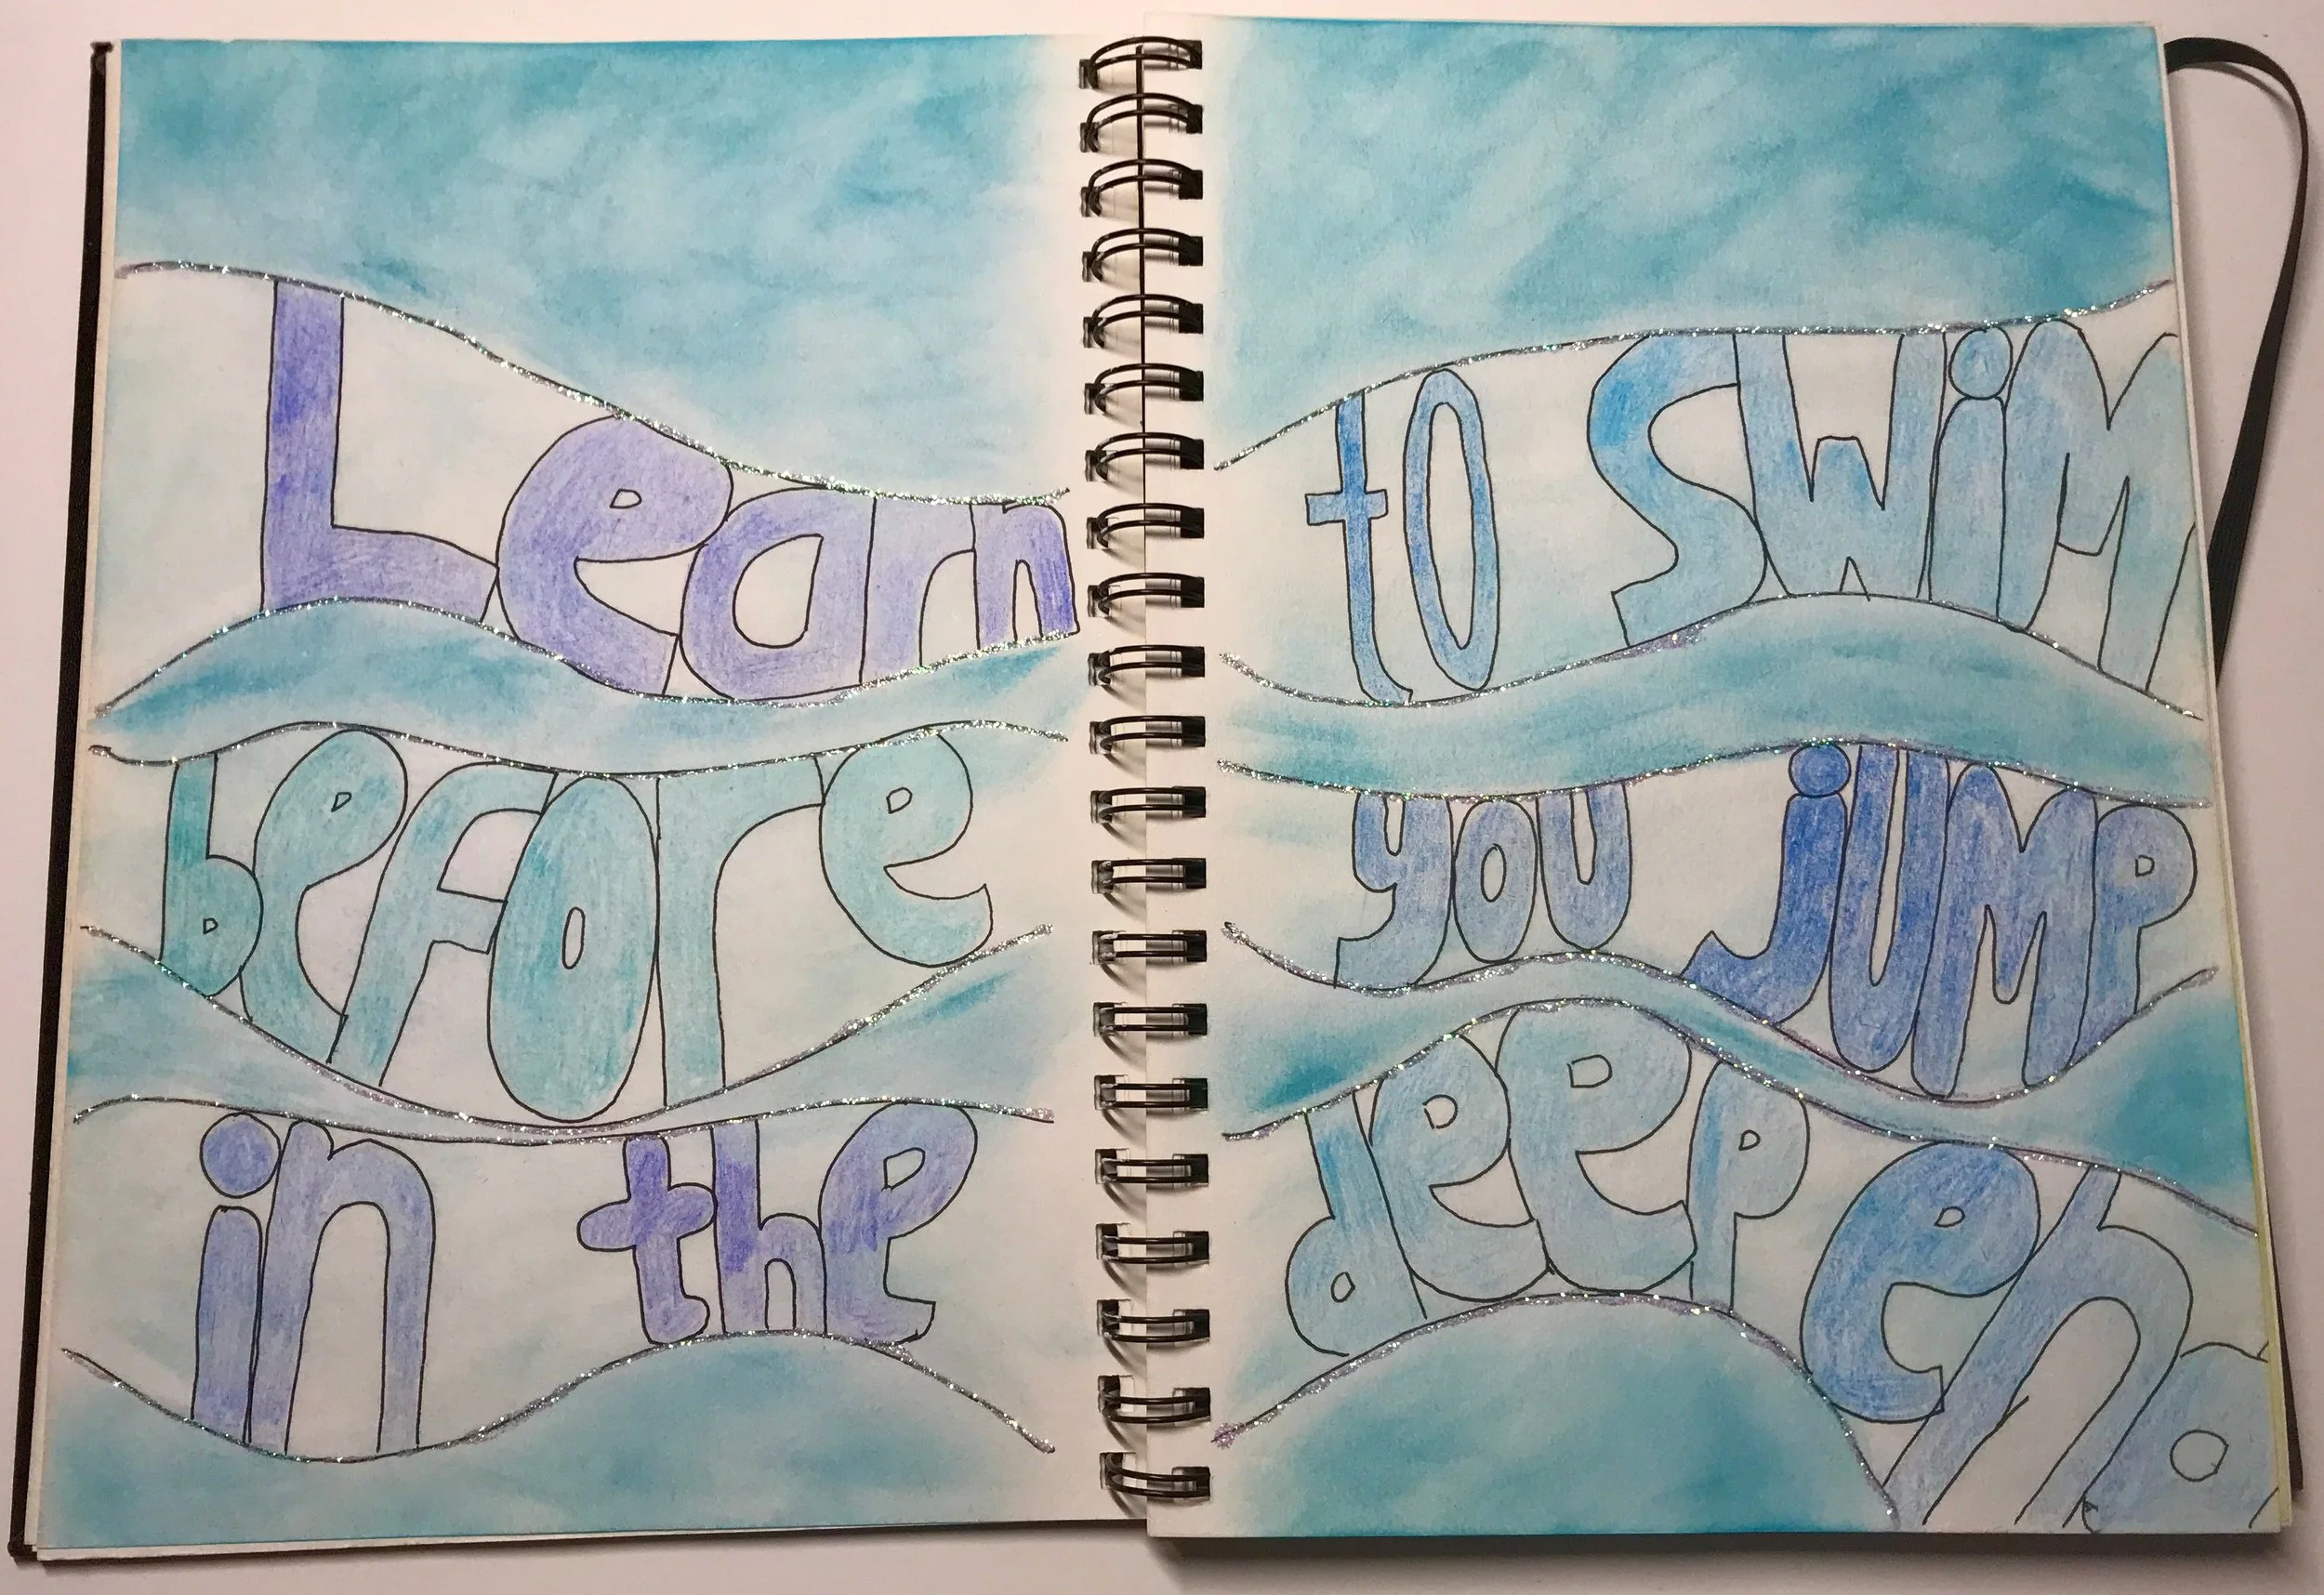 Learn to SWiM
before you jUMP
in the deep end